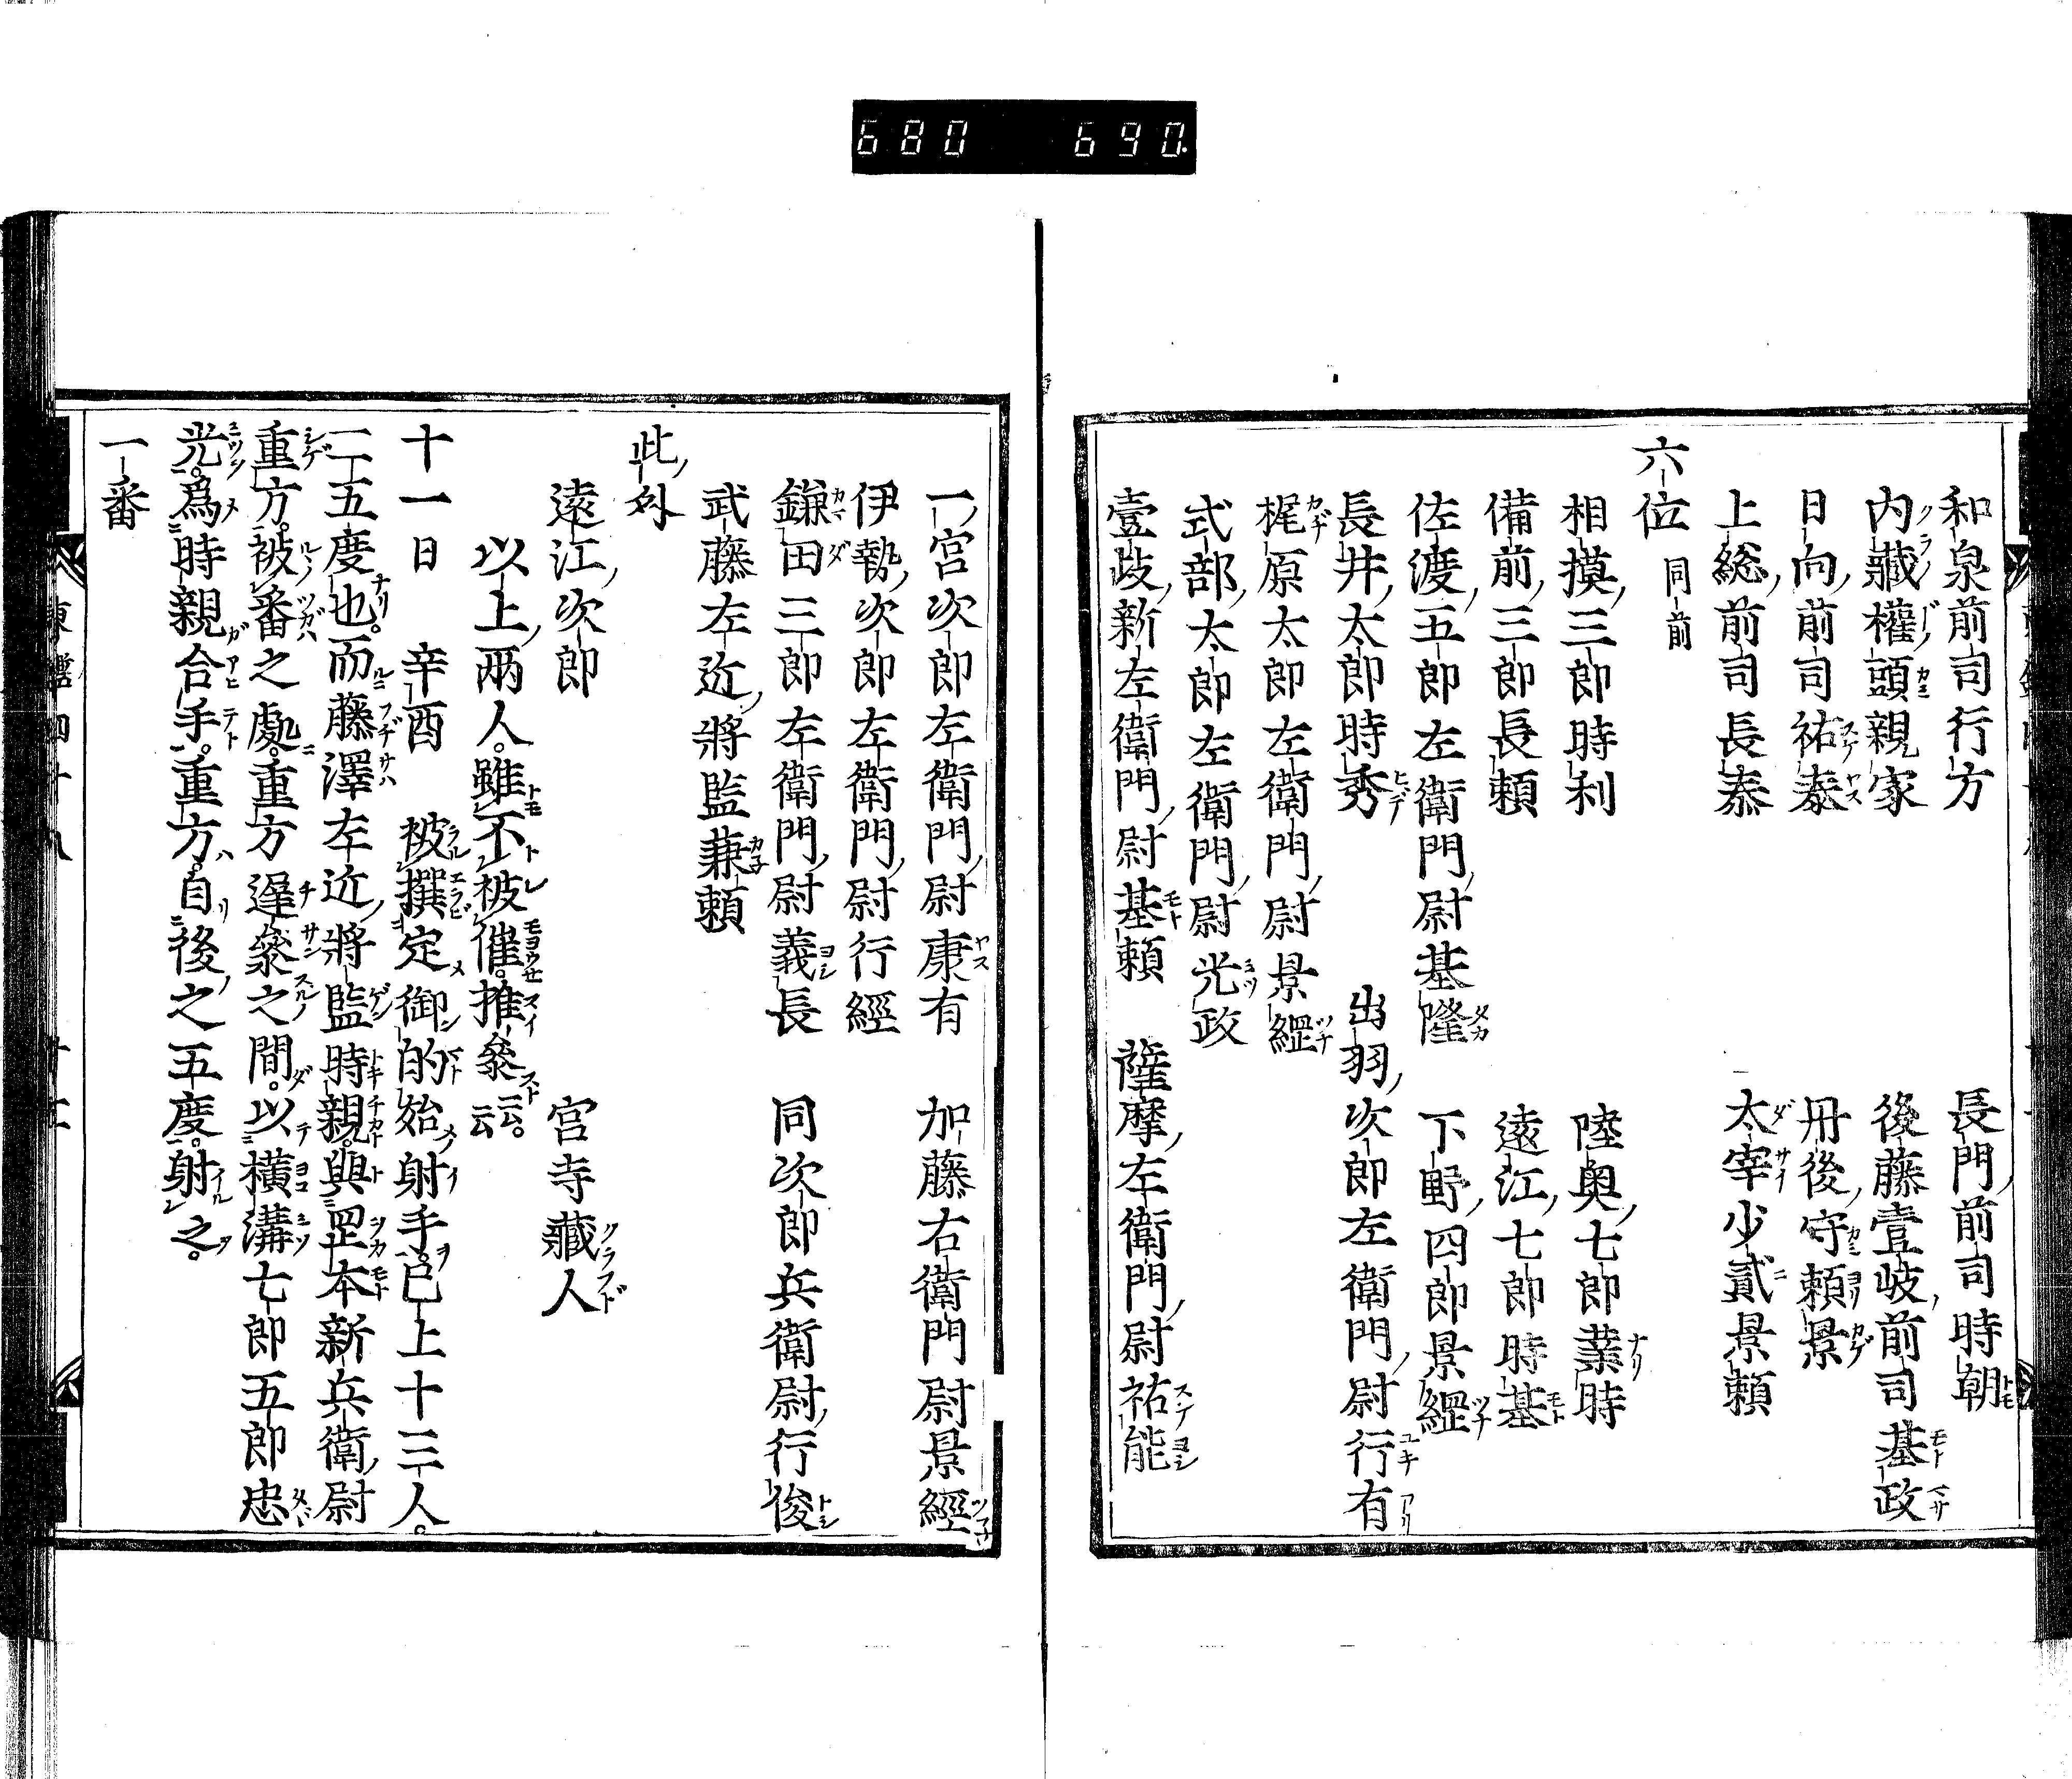 680 690
和泉前司行方 長門前司時朝
内藏權頭親家 後藤壹岐前司基政
日向前司祐泰 丹後守頼景
上総前司長泰 太宰少貳景頼
六位 同前
相摸三郎時利 陸奥七郎業時
備前三郎長頼 遠江七郎時基
佐渡五郎左衛門尉基隆 下野四郎景綱
長井太郎時秀 出羽次郎左衛門尉行有
梶原太郎左衛門尉景綱
式部太郎左衛門尉光政
壹岐新左衛門尉基頼 薩摩左衛門尉祐能
一宮次郎左衛門尉康有 加藤右衛門尉景經
伊勢次郎左衛門尉行經
鎌田三郎左衛門尉義長 同次郎兵衛尉行俊
武藤左近將監兼頼
此外
遠江次郎 宮寺藏人
以上兩人。雖不被催。推參云云。
十一日 辛酉 被撰定御的始射手。已上十三人。
二五度也。而藤澤左近將監時親。與罡本新兵衛尉
重方。被番之處。重方遲參之間。以横溝七郎五郎忠
光。爲時親合手。重方。自後之五度。射之。
一番